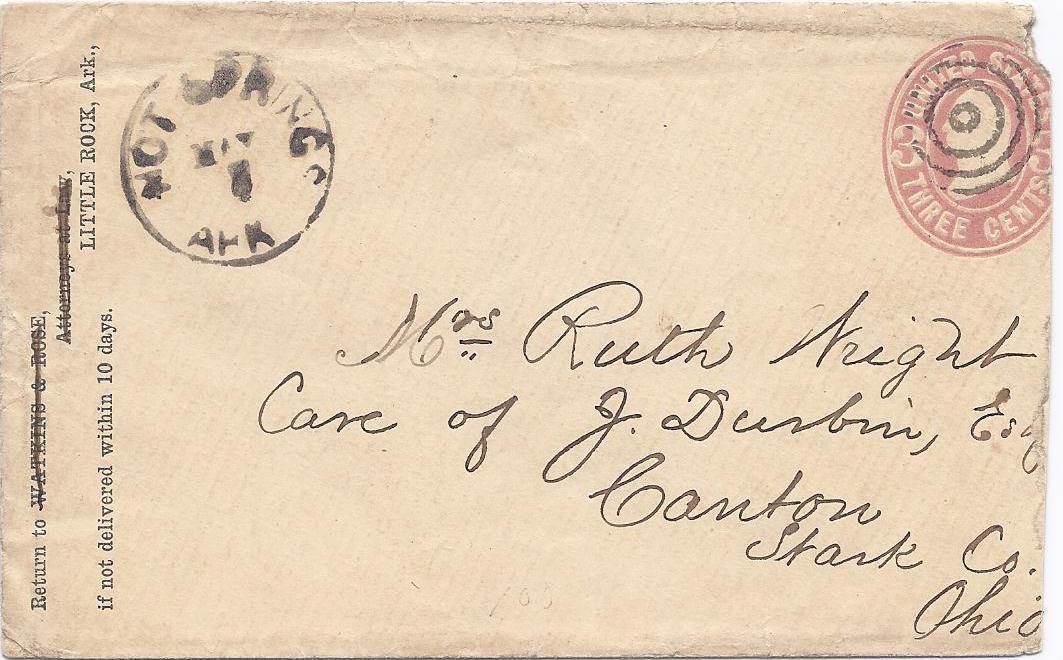 Return to WATKINS & ROSE,
Attorneys at Law,
LITTLE ROCK, Ark.,
if not delivered within 10 days.
HOT SPRINGS
MAY
ARK
UNITED STATES
3 3
THREE CENTS
Mrs Ruth Wright
Care of J. Durbin, Esq
Canton
Stark Co.
Ohio